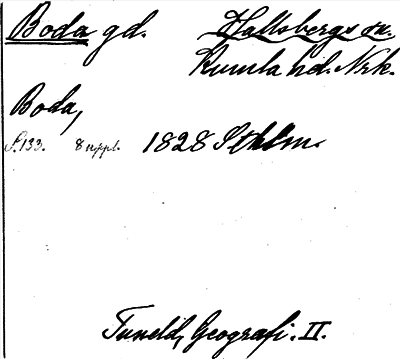 Boda gd. Hallsbergs sn.
Kumla hd. Nrk.
Boda,
S. 133. 8 uppl. 1828 Sthlm.
Tuneld, Geografi. II.